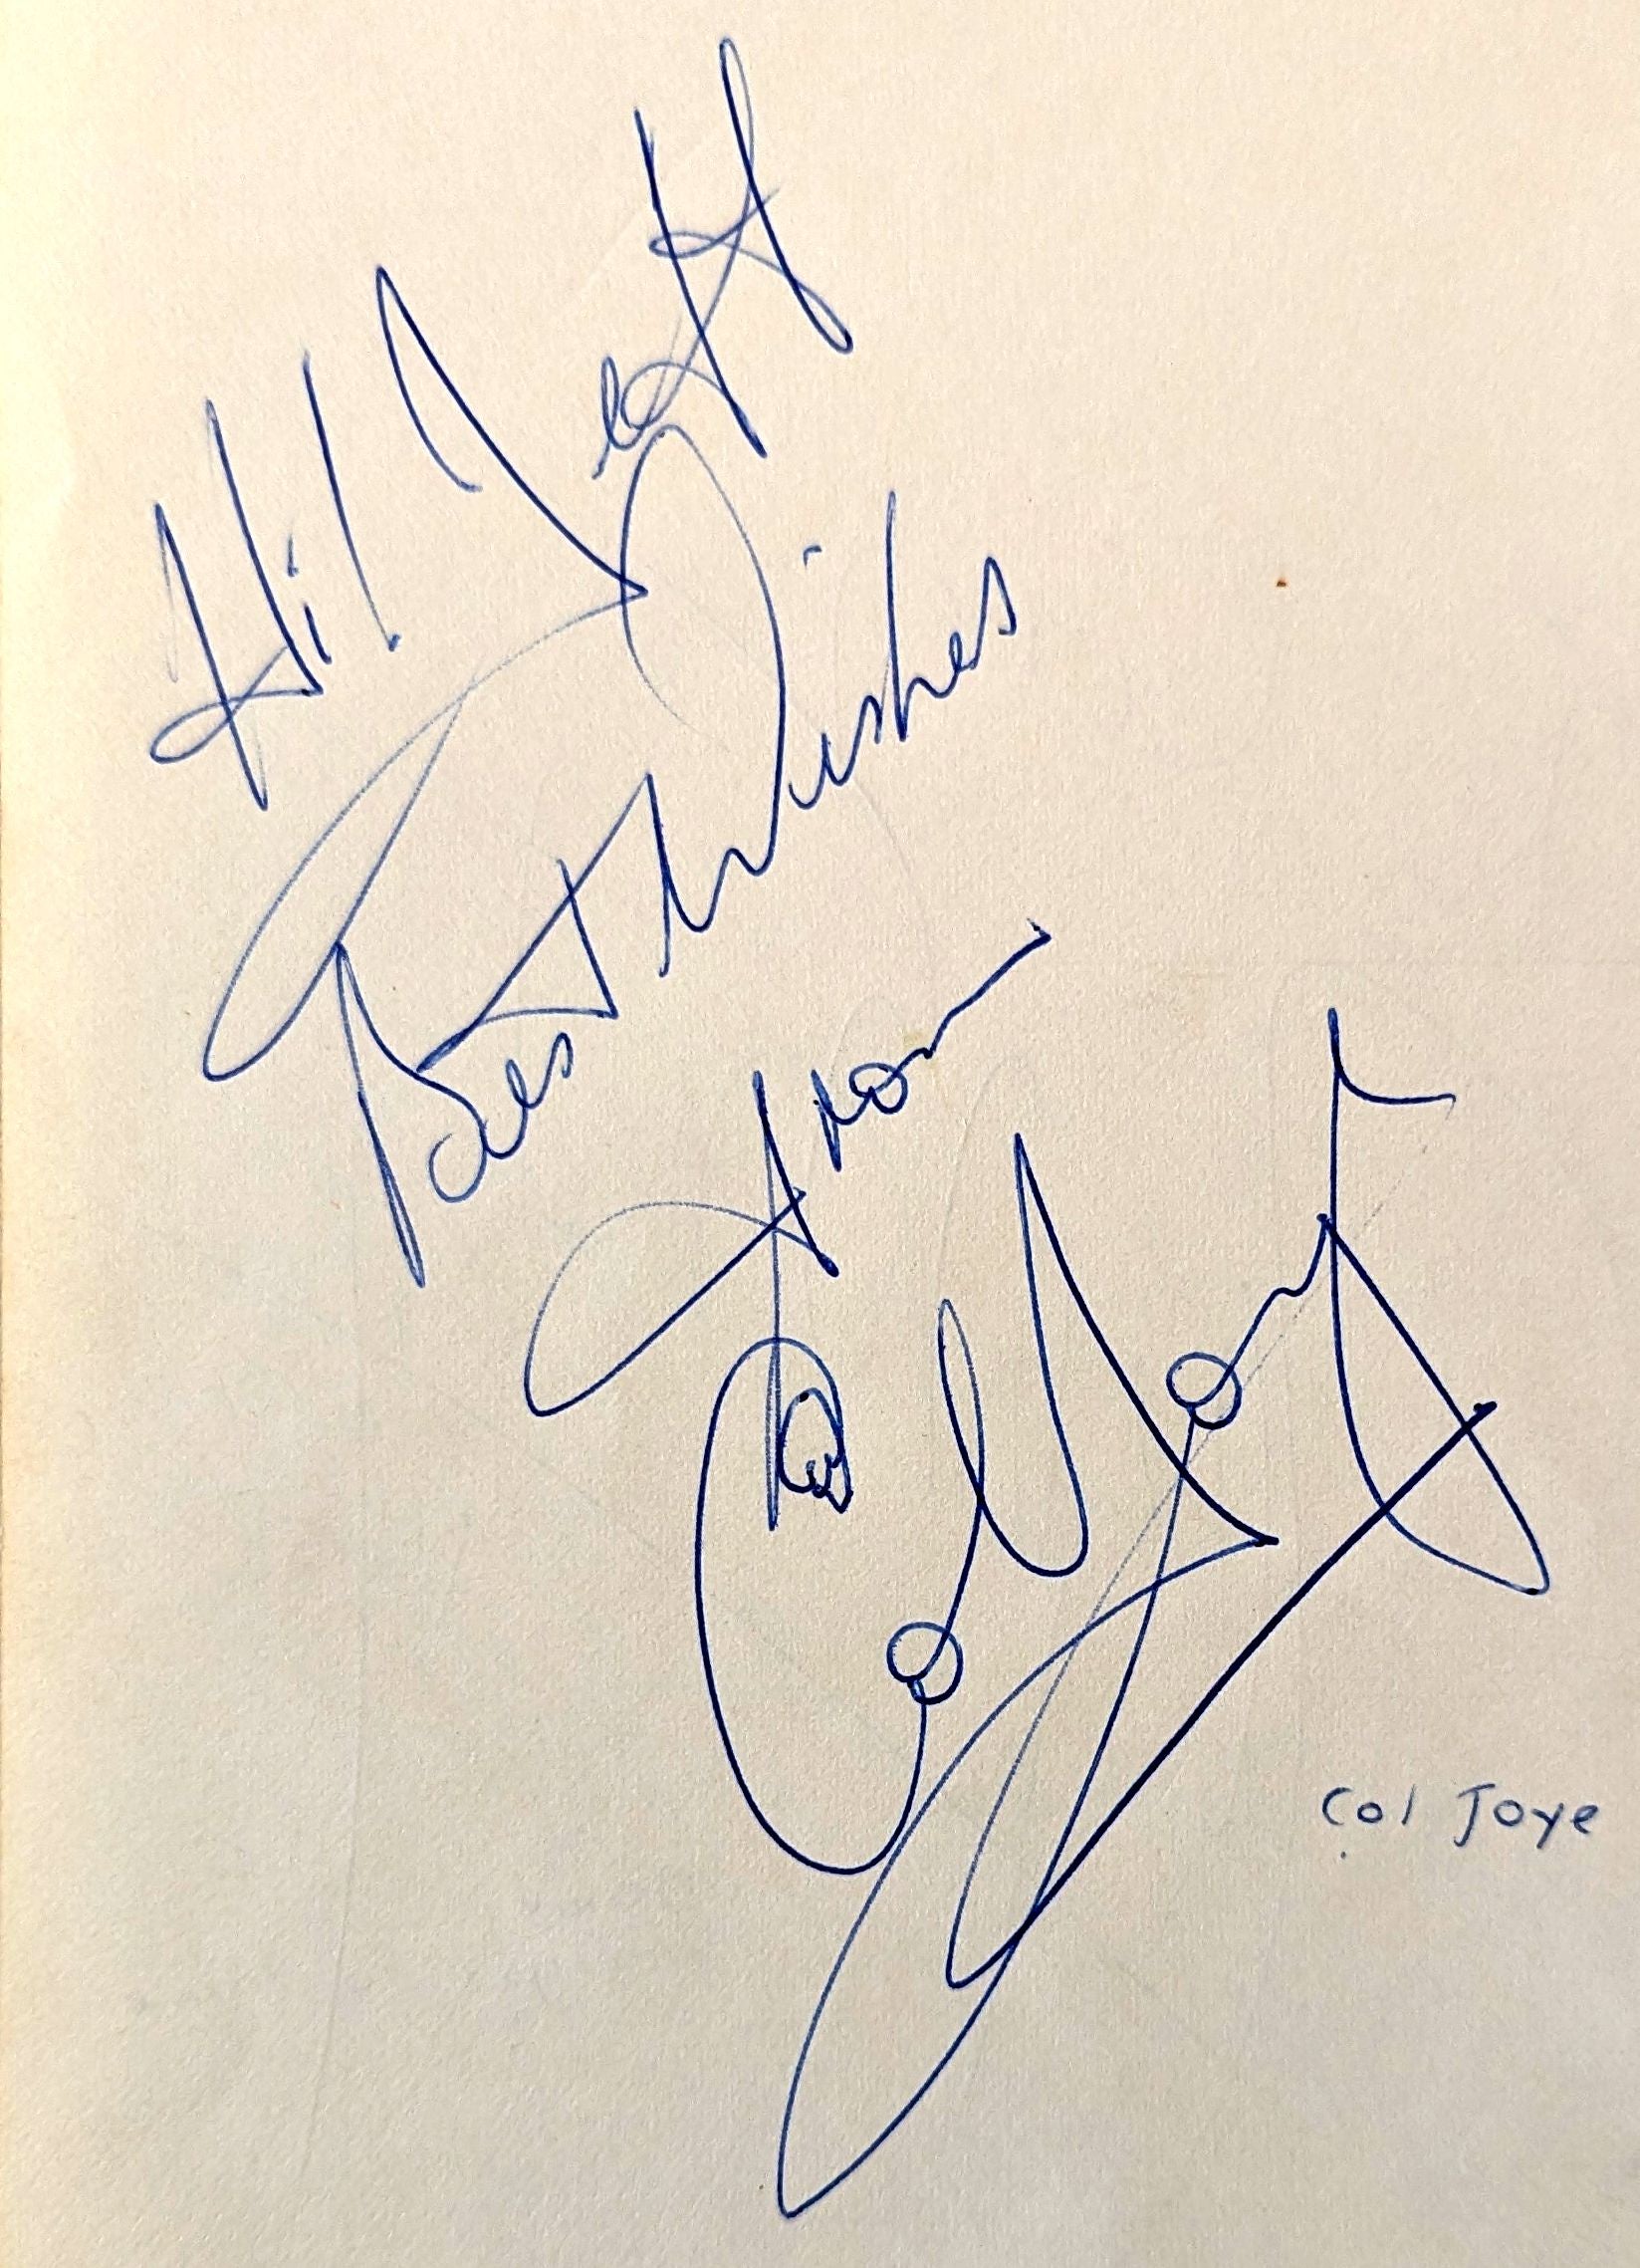 Hi! Jeff
Best Wishes
from
Col Joye
Col Joye